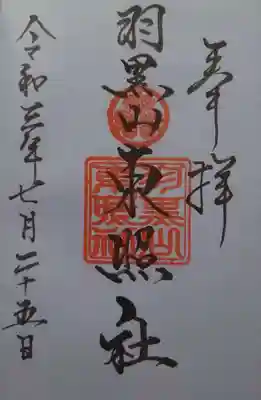 奉拝
羽黒山東照社
令和三年七月二十五日